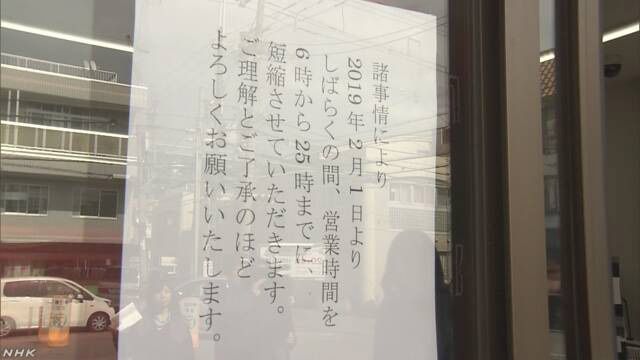 諸事情により
2019年2月1日より
しばらくの間、営業時間を
6時から25時までに、
短縮させていただきます。
ご理解とご了承のほど
よろしくお願いいたします。
NHK